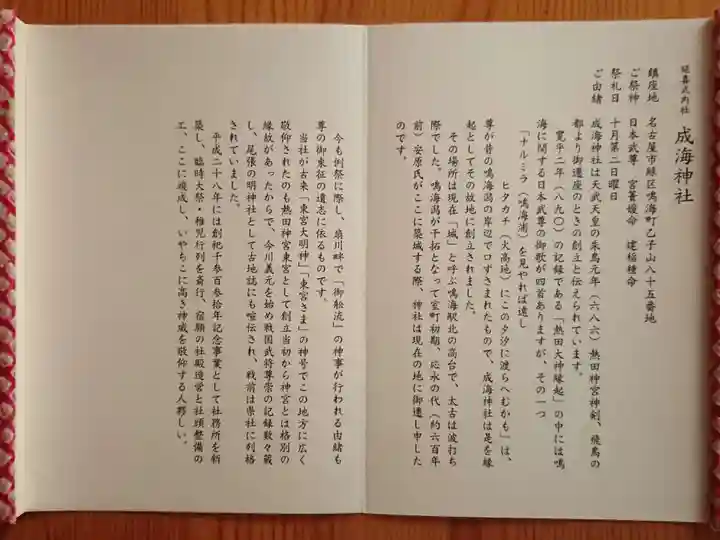 延喜式内社 成海神社
鎮座地 名古屋市緑区鳴海町乙子山八十五番地
ご祭神 日本武尊 宮簀媛命 建稲種命
祭礼日 十月第二日曜日
ご由緒 成海神社は天武天皇の朱鳥元年(六八六)熱田神宮神剣、飛鳥の
都より御遷座のときの創立と伝えられています。
寛平二年(八九〇)の記録である「熱田大神縁起」の中には鳴
海に関する日本武尊の御歌が四首ありますが、その一つ
「ナルミラ(鳴海浦)を見やれば遠し
ヒタカチ(火高地)にこの夕汐に渡らへむかも」は、
尊が昔の鳴海潟の岸辺で口ずさまれたもので、成海神社は是を縁
起としてその故地に創立されました。
その場所は現在「城」と呼ぶ鳴海駅北の高台で、太古は波打ち
際でした。鳴海潟が干拓となって室町初期、応永の代(約六百年
前)安原氏がここに築城する際、神社は現在の地に御遷し申した
のです。
今も例祭に際し、扇川畔で「御船流」の神事が行われる由緒も
尊の御東征の遺志に依るものです。
当社が古来「東宮大明神」「東宮さま」の神号でこの地方に広く
敬仰されたのも熱田神宮東宮として創立当初から神宮とは格別の
縁故があったからで、今川義元を始め戦国武将尊崇の記録数々蔵
し、尾張の明神社として古地誌にも喧伝され、戦前は県社に列格
されていました。
平成二十八年には創祀千参百参拾年記念事業として社務所を新
築し、臨時大祭・稚児行列を斎行、宿願の社殿造営と社頭整備の
工、ここに竣成し、いやちこに高き神威を敬仰する人夥しい。